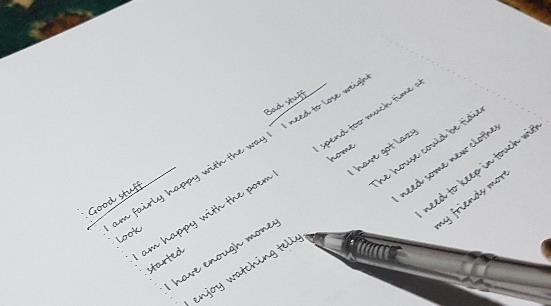 Good stuff
I am fairly happy with the way I
look
I am happy with the poem I
started
I have enough money
I enjoy watching telly
Bad stuff
I need to lose weight
I spend too much time at
home
I have got lazy
The house could be tidier
I need some new clothes
I need to keep in touch with
my friends more